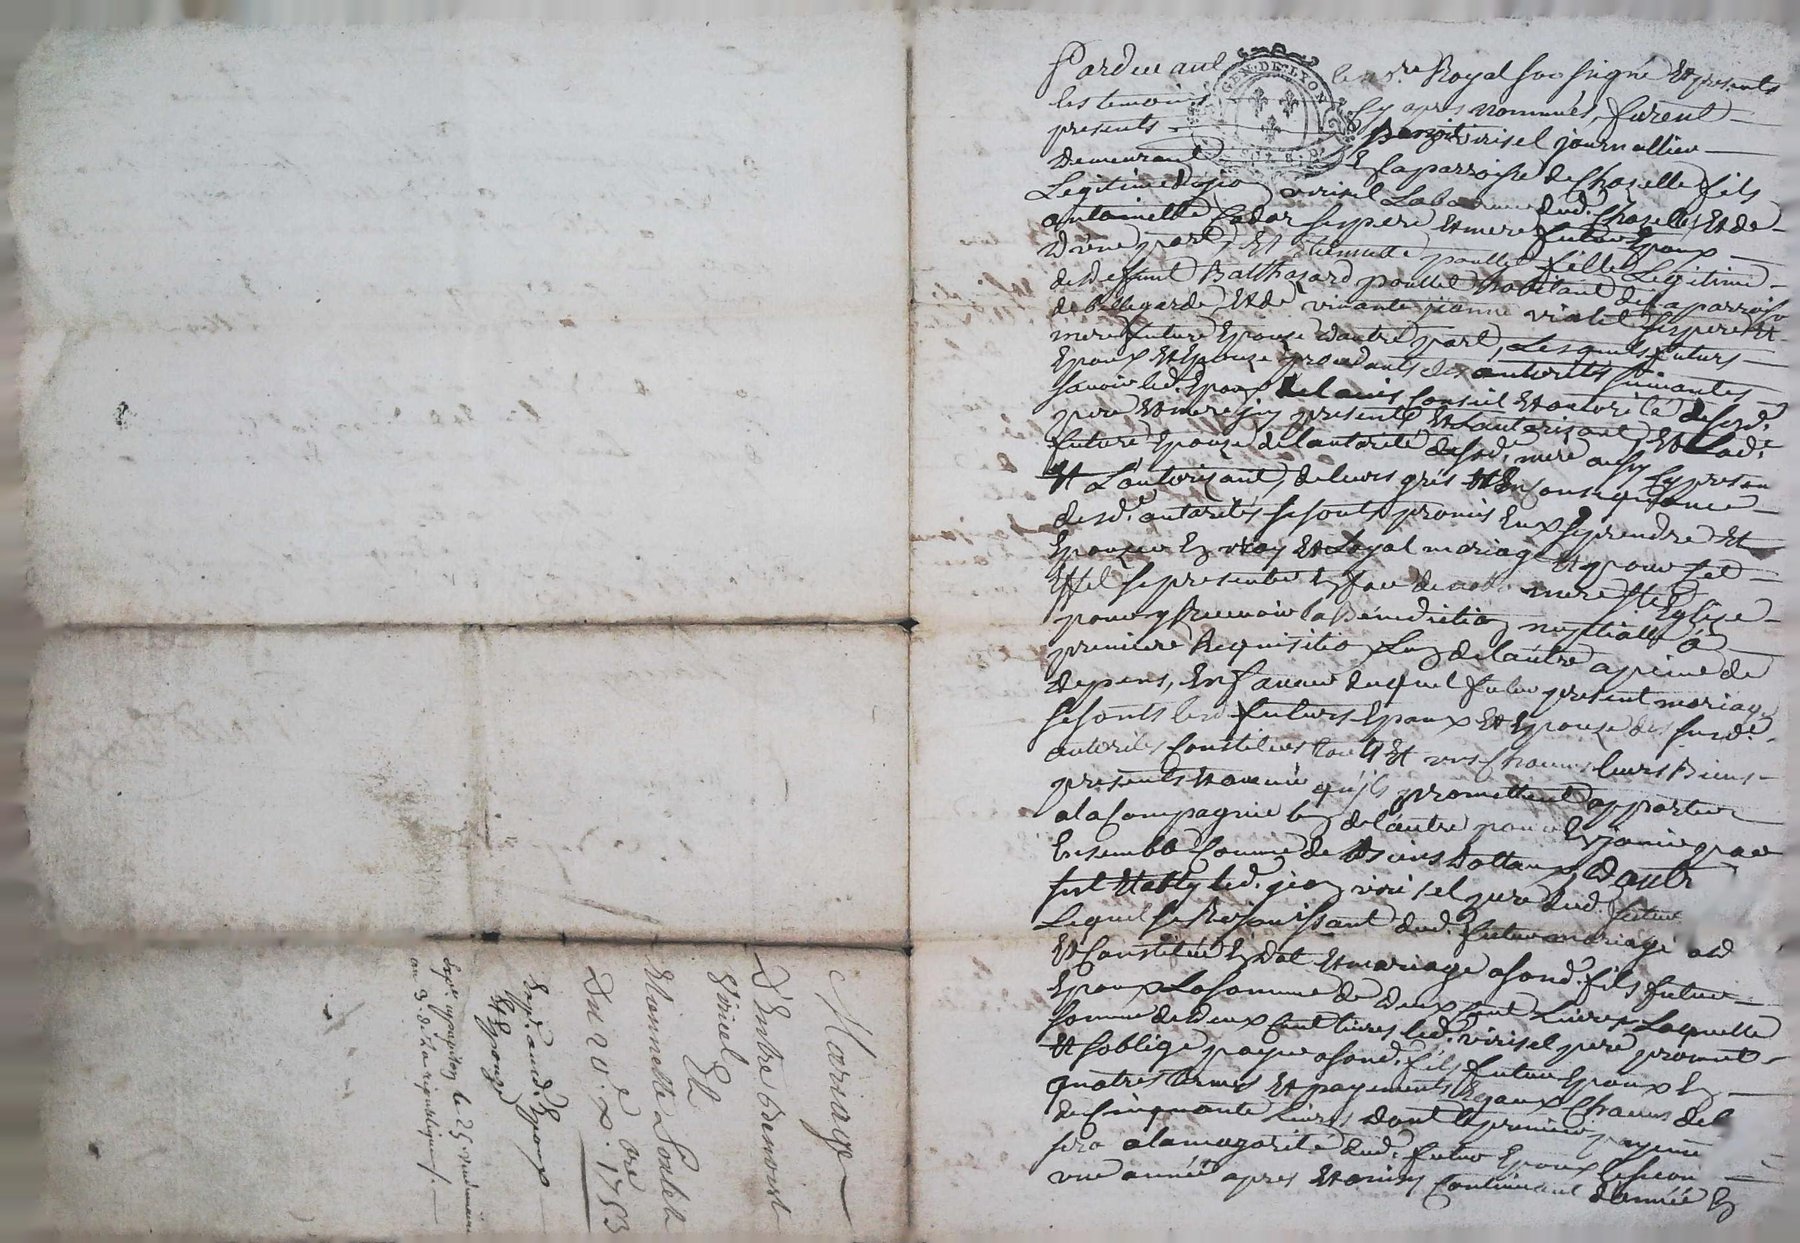 Pardevant le n.re Royal soussigné Et presents
les temoins cy apres nommés, furent
presents Benoit virisel journallier
demeurant En la parroisse de Chazelle fils
Legitime de virisel Lab dud. Chazelles Et de
antoinette Cadar ses pere Et mere futur Epoux
d'une part, Et Etiennette poullet fille Legitime
de deffunt Balthazard poullet habitant de la parroisse
de bellegarde, Et de vivante jeanne violet ses pere Et
mere future Epouse d'autre part, Lesquels futurs
Epoux Et Epouze procedants des autorités suivantes
savoir led. Epoux de l'avis Conseil Et autorité de sesd.
pere Et mere icy presents Et L'autorisant, Et Lad.e
future Epouze de l'autorité de sad.e mere aussy Cy presente
Et L'autorizant, de leurs grés Et En Consequence
desd. autorités se sont promis Eux se prendre Et
Epouzer En vray Et Loyal mariage Et pour Cet
Effet se presenter En face de notre mere S.te Eglise
pour y Recevoir la Bénédiction nuptialle à
premiere Requisition L'un de l'autre a peine de
depens, En faveur duquel futur present mariage
se sont lesd. futurs Epoux Et Epouse des susd.
autorités Constitués tous Et uns Chacuns leurs Biens
presents Et avenir qu'ils promettent apporter
a la Compagnie l'un de l'autre pour En jouir
Ensemble Comme de Biens dottaux, d'autre
part Etably led. jean virisel pere dud. futur
Lequel se Rejouissant dud. futur mariage a d
Et Constitué En Dot Et mariage a sond. fils futur
Epoux La somme de Deux Cent Livres Laquelle
somme de deux Cent livres led. virisel pere promet
Et s'oblige payer a sond. fils futur Epoux En
quatres termes Et payements Egaux Chacuns de
de Cinquante Livres dont Le premier payement
sera a la majorité dud. futur Epoux le second
une année apres Et ainsy Continuant d'année En
Mariage
D'Entre Benoist
Virisel
Et
Etiennette Poulet
Du 20.e x.bre 1753
Exp. aud. Epoux
Et Epouze
le 25 vendemiaire
an 3 de la republique